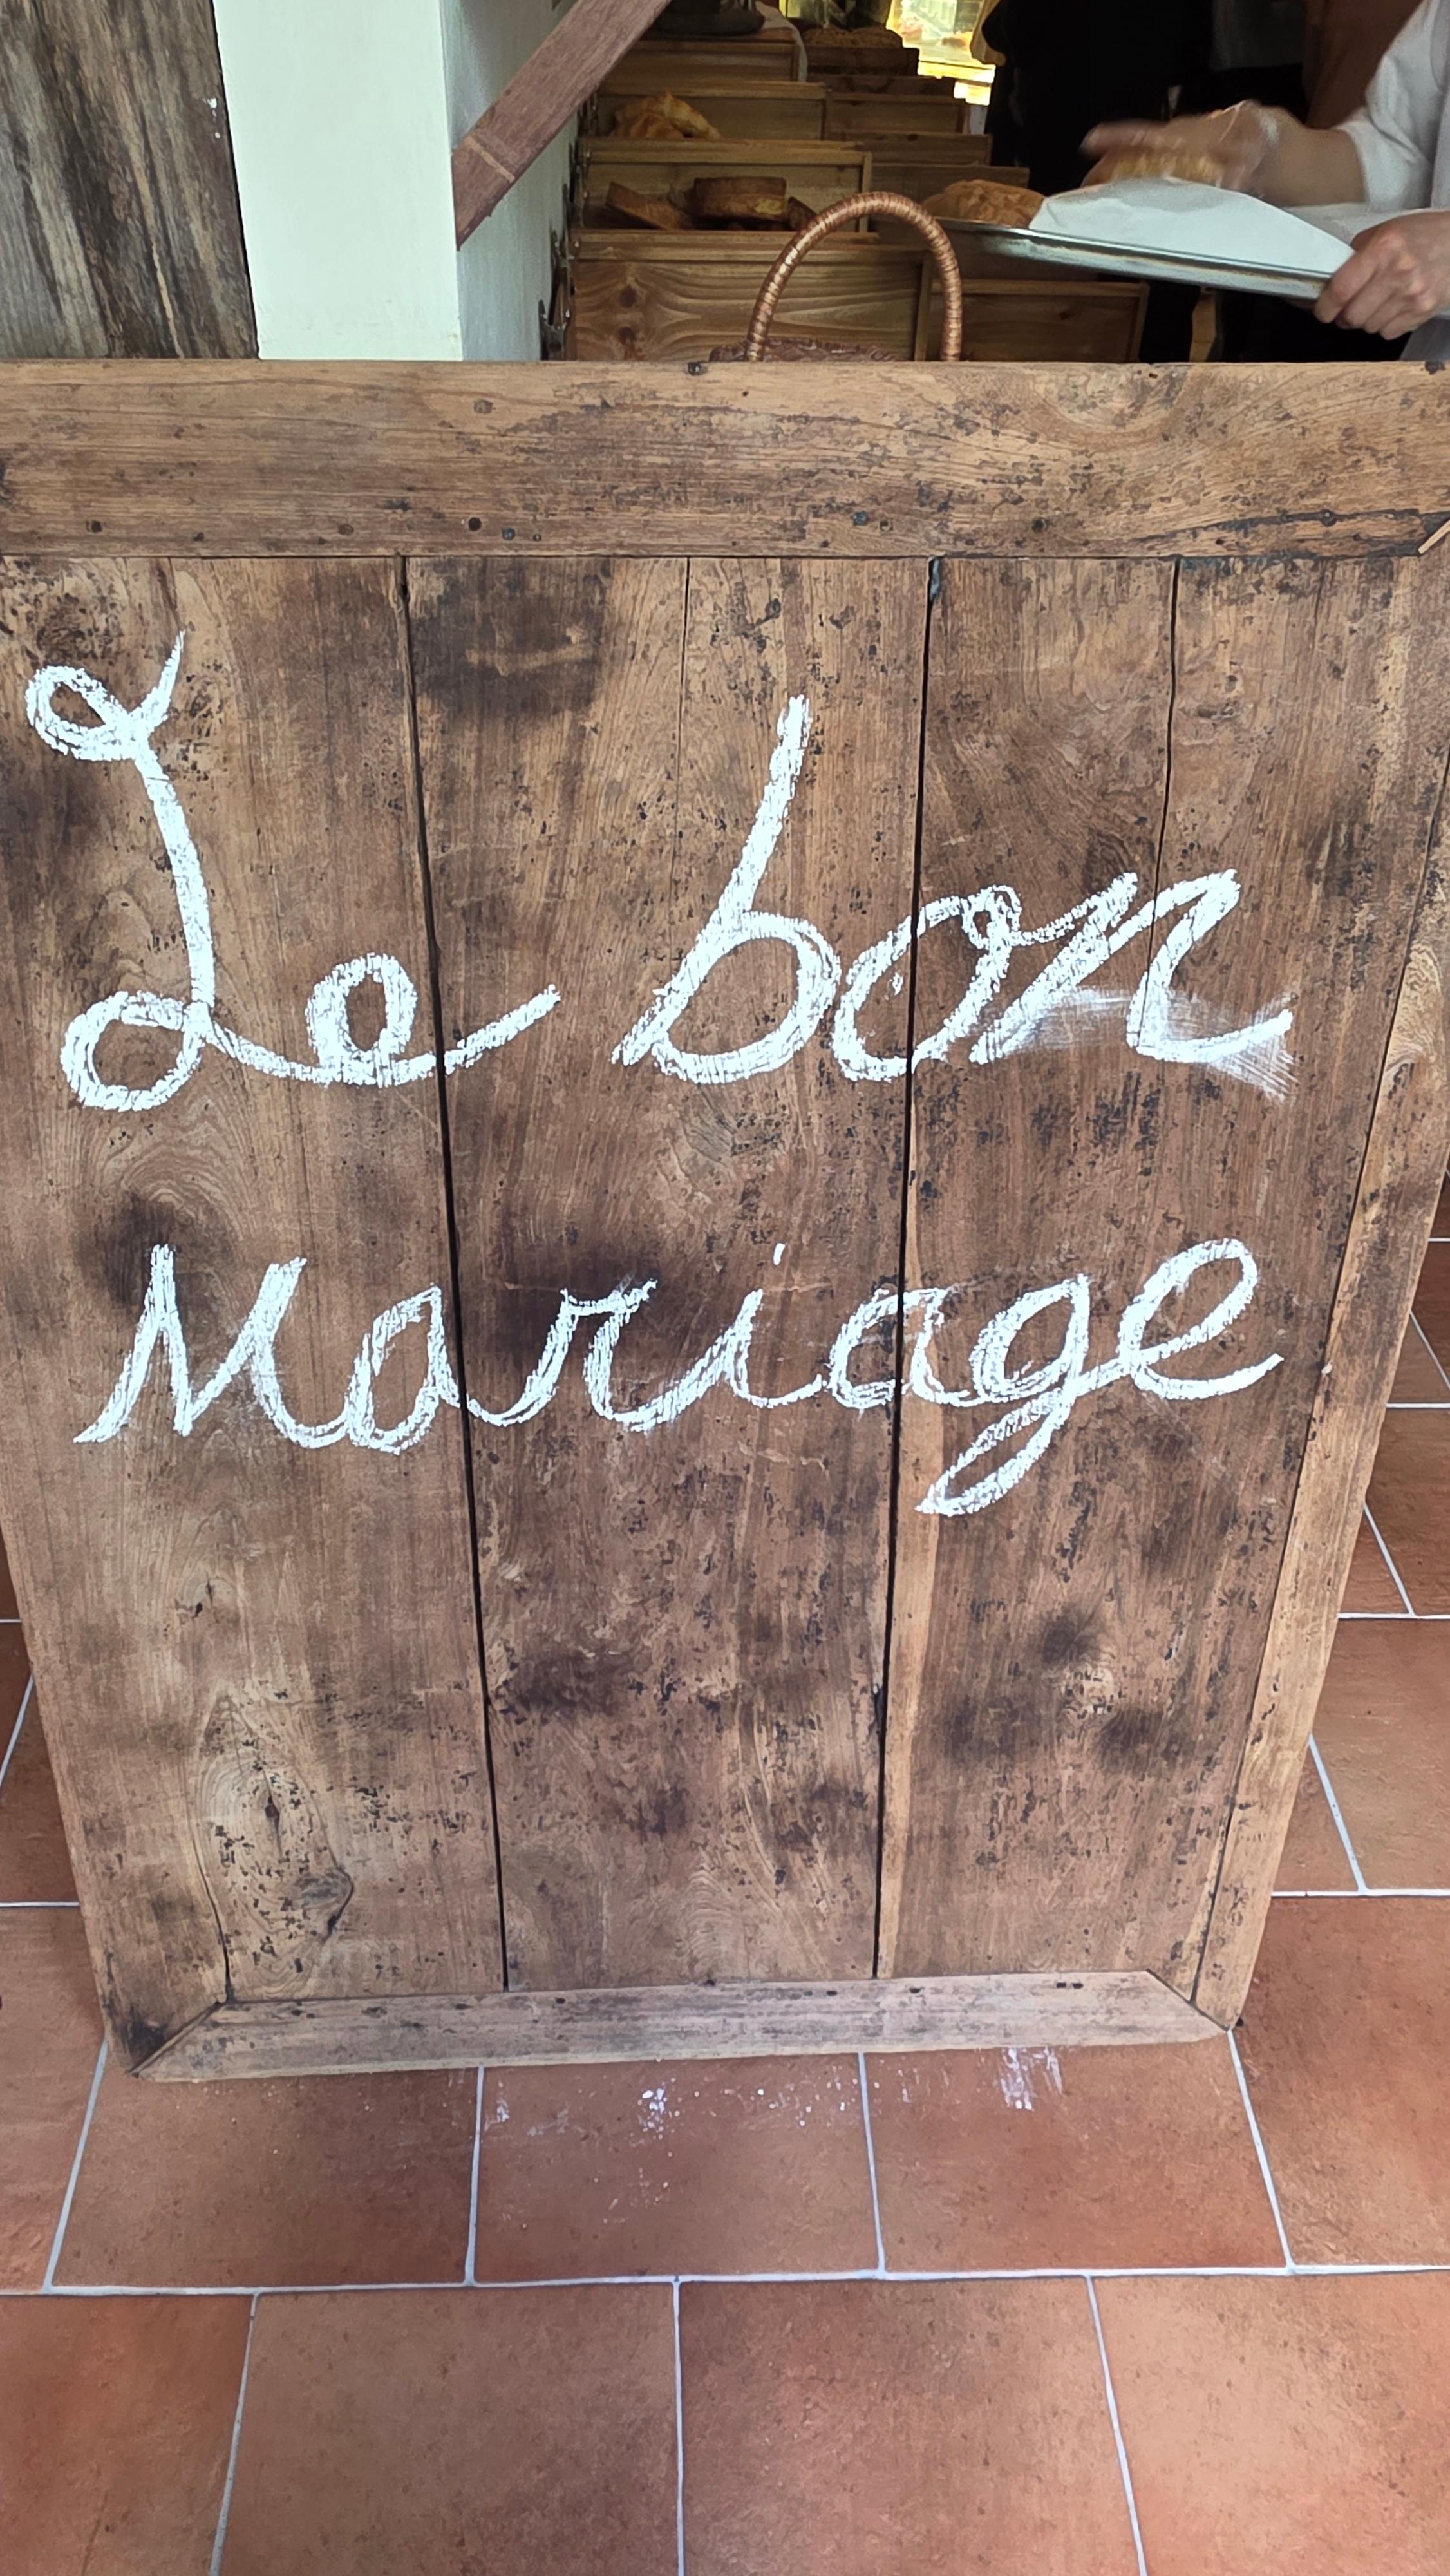 Le bon
Mariage